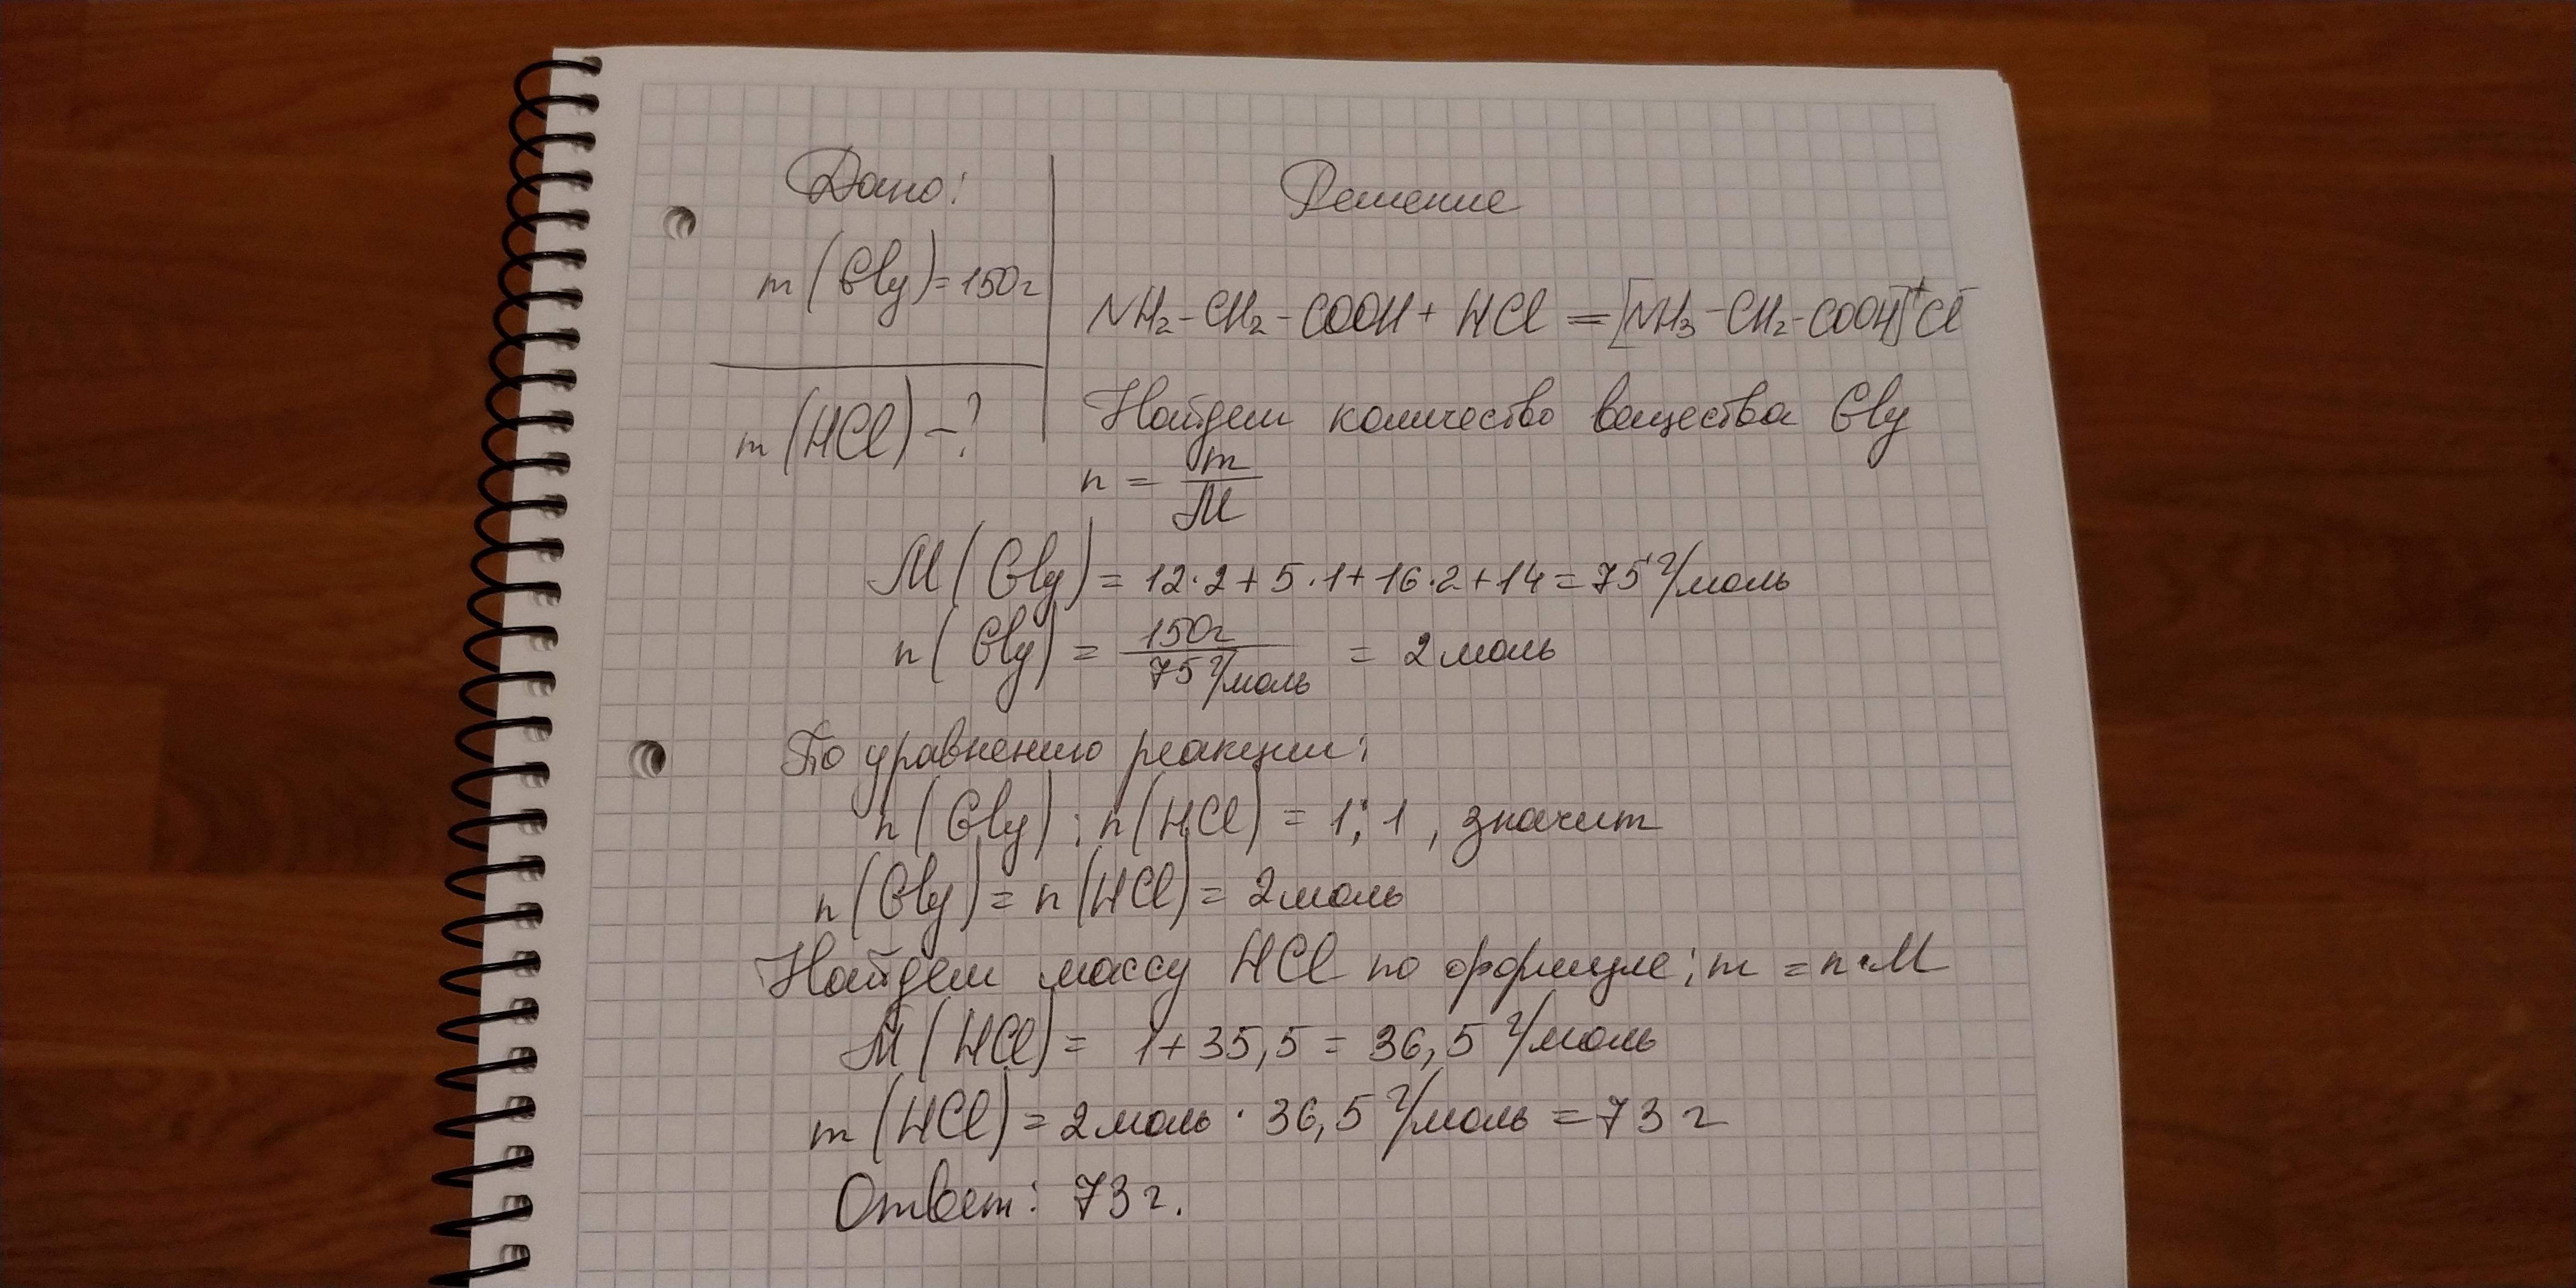 Дано:
m(Gly)=150г
m(HCl)-?
Решение
NH₂-CH₂-COOH + HCl = [NH₃-CH₂-COOH]⁺Cl⁻
Найдем количество вещества Gly
n = m/M
M(Gly) = 12·2+5·1+16·2+14=75 г/моль
n(Gly) = 150г/75 г/моль = 2 моль
По уравнению реакции:
n(Gly):n(HCl) = 1:1, значит
n(Gly) = n(HCl) = 2 моль
Найдем массу HCl по формуле: m = n·M
M(HCl) = 1+35,5 = 36,5 г/моль
m(HCl) = 2 моль · 36,5 г/моль = 73 г
Ответ: 73 г.